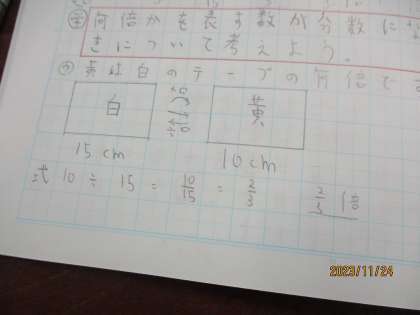 何倍かを表す数が分数に
きについて考えよう。
黄は白のテープの何倍で
白 黄
15 cm 10 cm
式 10 ÷ 15 = 10/15 = 2/3 2/3 倍
2023/11/24